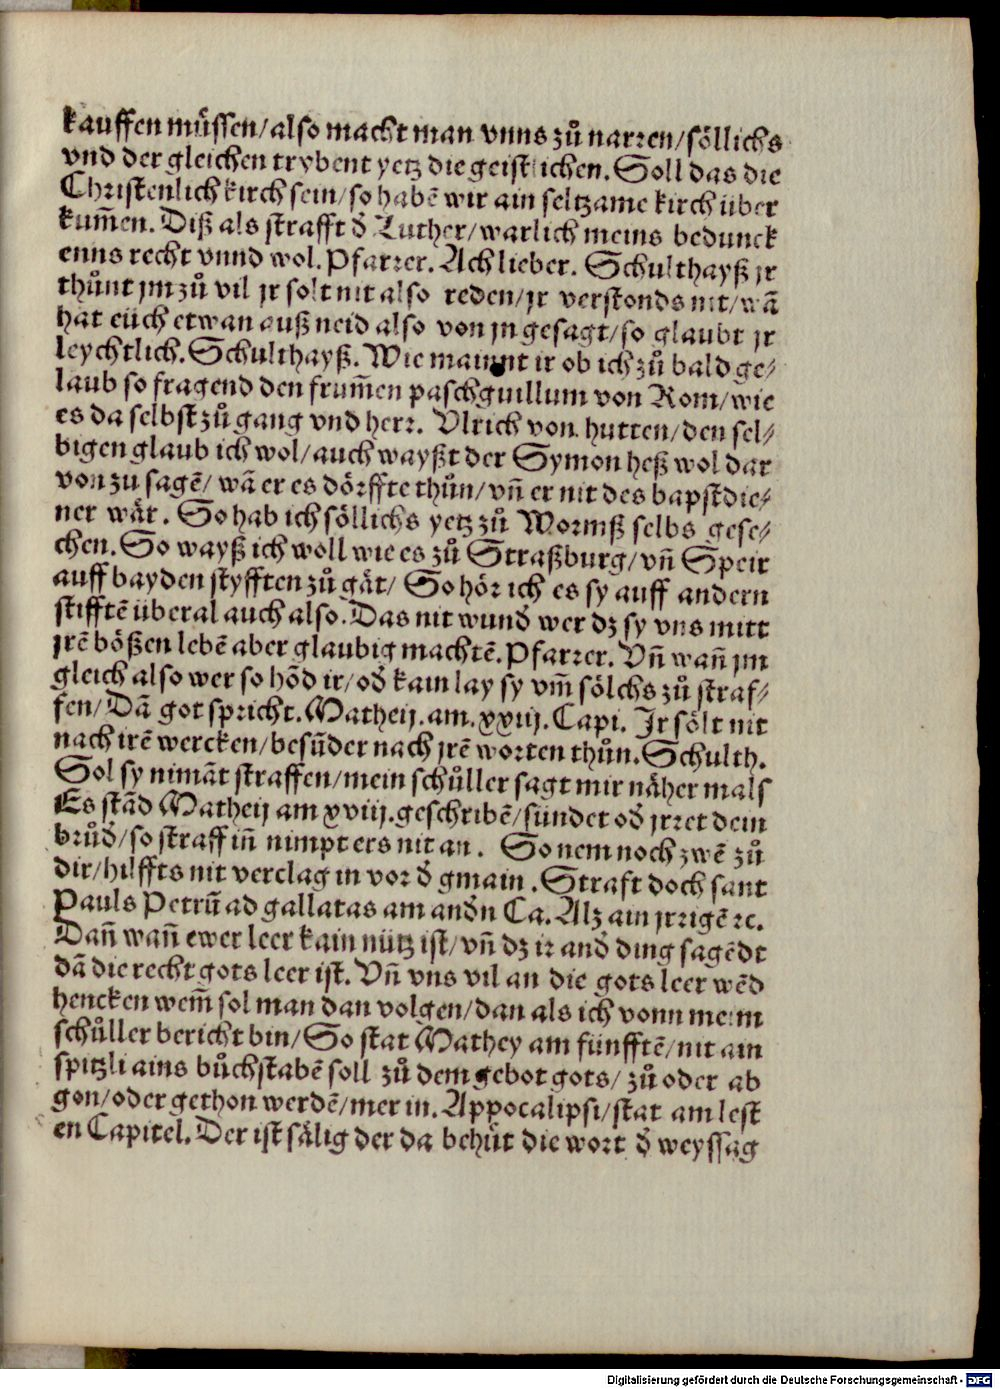 kauffen müssen/also macht man vnns zů narren/söllichs
vnd der gleichen trybent yetz die geistlichen. Soll das die
Christenlich kirch sein/so habē wir ain seltzame kirch über
kum̃en. Diß als strafft d̕ Luther/warlich meins bedunck
enns recht vnnd wol. Pfarrer. Ach lieber. Schulthayß jr
thůnt jm zů vil jr solt nit also reden/jr verstonds nit/wā
hat eüch etwan auß neid also von jn gesagt/so glaubt jr
leychtlich. Schulthayß. Wie mainnt ir ob ich zů bald ge⸗
laub so fragend den frum̃en paschguillum von Rom/wie
es da selbst zů gang vnd herr. Vlrich von hutten/den sel⸗
bigen glaub ich wol/auch wayßt der Symon heß wol dar
von zu sagē/wā er es dörffte thůn/vn̄ er nit des bapst die⸗
ner wär. So hab ich söllichs yetz zů Wormß selbs gese⸗
chen. So wayß ich woll wie es zů Straßburg/vn̄ Speir
auff bayden styfften zů gät/ So hör ich es sy auff andern
stifftē überal auch also. Das nit wund̕ wer dz sy vns mitt
jrē bößen lebē aber glaubig machtē. Pfarrer. Vn̄ wan̄ jm
gleich also wer so hōd ir/od̕ kain lay sy vm̄ sölchs zů straf⸗
fen/Dā got spricht. Matheij. am. xxiij. Capi. Jr sölt nit
nach irē wercken/besūder nach jrē worten thůn. Schulth.
Sol sy nimāt straffen/mein schůller sagt mir näher mals
Es stād Matheij am xviij. geschribē/sündet od̕ jrret dein
brůd̕/so straff in̄ nimpt ers nit an. So nem noch zwē zů
dir/hilffts nit verclag in vor d̕ gmain. Straft doch sant
Pauls Petrū ad gallatas am and̕n Ca. Alz ain jrrigē ꝛc.
Dan̄ wan̄ ewer leer kain nütz ist/vn̄ dz ir and̕ ding sagēdt
dā die recht gots leer ist. Vn̄ vns vil an die gots leer wēd
hencken wem̄ sol man dan volgen/dan als ich vonn meim
schůller bericht bin/So stat Mathey am fünfftē/nit ain
spitzli ains bůchstabē soll zů dem gebot gots/zů oder ab
gon/oder gethon werdē/mer in. Appocalipsi/stat am lest
en Capitel. Der ist sälig der da behüt die wort d̕ weyssag
Digitalisierung gefördert durch die Deutsche Forschungsgemeinschaft - DFG